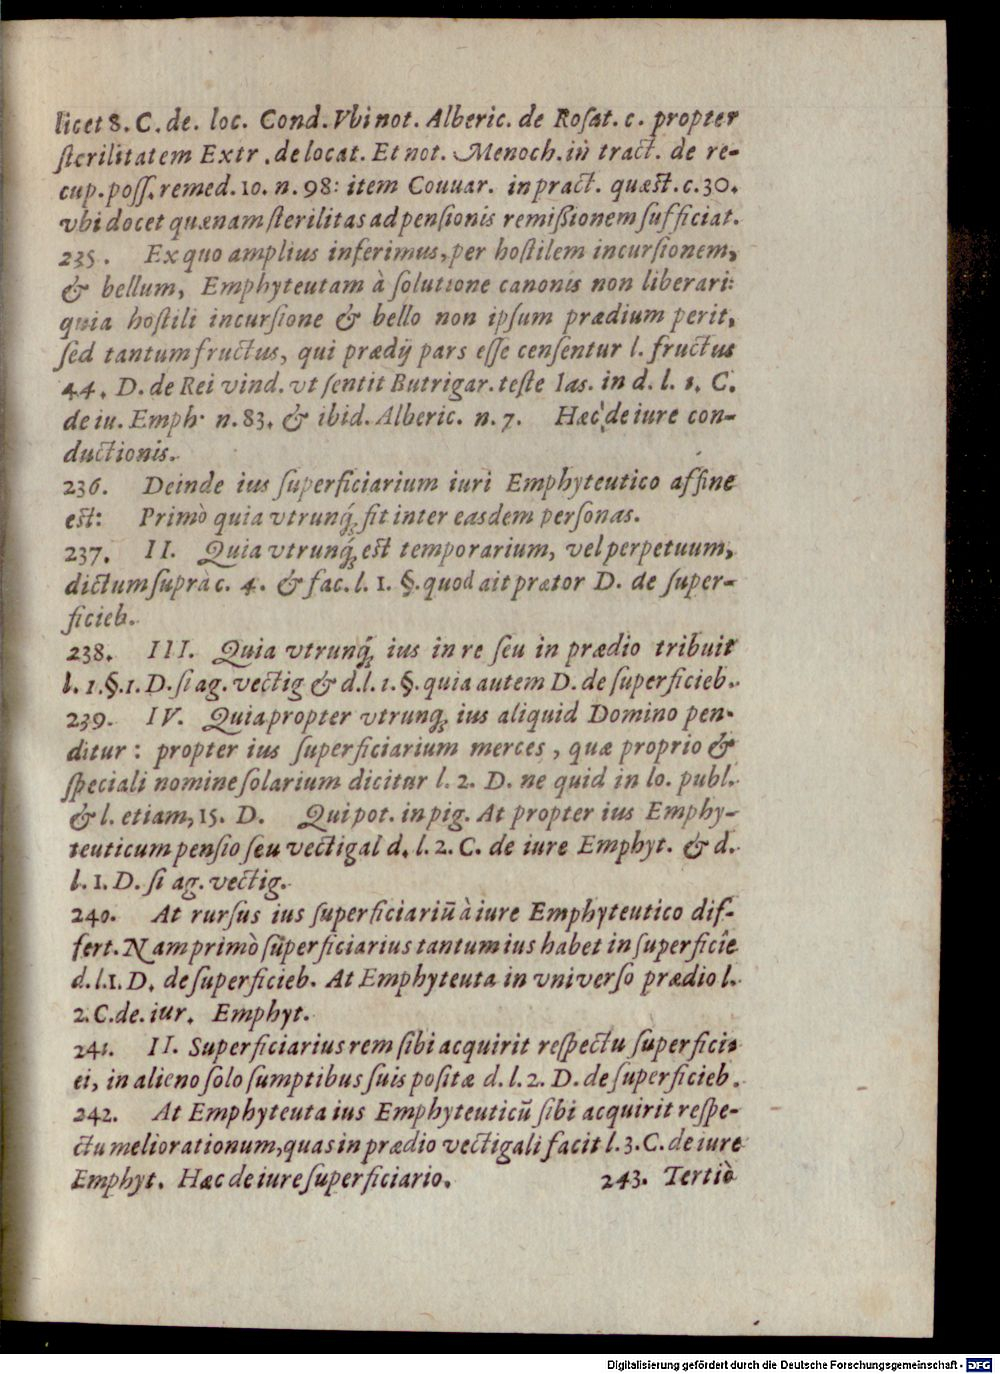 licet 8. C. de. loc. Cond. Vbi not. Alberic. de Roſat. c. propter
ſterilitatem Extr. de locat. Et not. Menoch. in tract. de re-
cup. poſſ. remed. 10. n. 98: item Couuar. in pract. quæst. c. 30.
vbi docet quænam ſterilitas ad penſionis remißionem ſufficiat.
235. Ex quo amplius inferimus, per hoſtilem incurſionem,
& bellum, Emphyteutam à ſolutione canonis non liberari:
quia hoſtili incurſione & bello non ipſum prædium perit,
ſed tantum fructus, qui prædij pars eſſe cenſentur l. fructus
44. D. de Rei vind. vt ſentit Butrigar. teſte Ias. in d. l. 1. C.
de iu. Emph. n. 83. & ibid. Alberic. n. 7. Hæc de iure con-
ductionis.
236. Deinde ius ſuperficiarium iuri Emphyteutico affine
est: Primò quia vtrunq́; fit inter easdem perſonas.
237. II. Quia vtrunq́; est temporarium, vel perpetuum,
dictum ſuprà c. 4. & fac. l. 1. §. quod ait prætor D. de ſuper-
ficieb.
238. III. Quia vtrunq́; ius in re ſeu in prædio tribuit
l. 1. §. 1. D. ſi ag. vectig & d. l. 1. §. quia autem D. de ſuperficieb.
239. IV. Quia propter vtrunq; ius aliquid Domino pen-
ditur: propter ius ſuperficiarium merces, quæ proprio &
ſpeciali nomine ſolarium dicitur l. 2. D. ne quid in lo. publ.
& l. etiam, 15. D. Qui pot. in pig. At propter ius Emphy-
teuticum penſio ſeu vectigal d. l. 2. C. de iure Emphyt. & d.
l. 1. D. ſi ag. vectig.
240. At rurſus ius ſuperficiariū à iure Emphyteutico dif-
fert. Nam primò ſuperficiarius tantum ius habet in ſuperficie
d. l. 1. D. de ſuperficieb. At Emphyteuta in vniverſo prædio l.
2. C. de. iur. Emphyt.
241. II. Superficiarius rem ſibi acquirit reſpectu ſuperfici-
ei, in alieno ſolo ſumptibus ſuis poſitæ d. l. 2. D. de ſuperficieb.
242. At Emphyteuta ius Emphyteuticū ſibi acquirit reſpe-
ctu meliorationum, quas in prædio vectigali facit l. 3. C. de iure
Emphyt. Hæc de iure ſuperficiario. 243. Tertiò
Digitalisierung gefördert durch die Deutsche Forschungsgemeinschaft - DFG